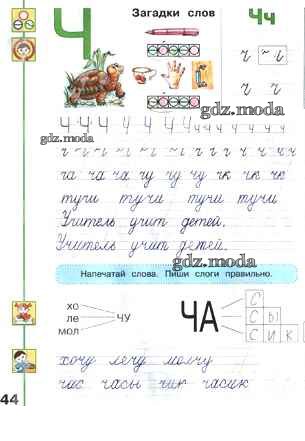 Загадки слов
Ч
Чч
ч ч
ч ч
gdz.moda
Ч Ч Ч Ч Ч Ч Ч Ч ч ч ч ч ч ч ч ч
gdz.moda
ча ча ча чу чу чу чк чк чк
тучи тучи тучи тучи
gdz.moda
Учитель учит детей.
Учитель учит детей.
gdz.moda
Напечатай слова. Пиши слоги правильно.
хо
ле
мол
ЧУ
ЧА
С
С Ы
С И К
хочу лечу молчу
час часы чик часик
gdz.moda
44